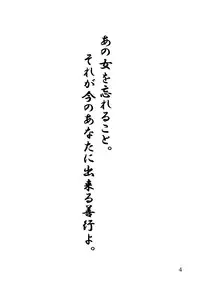 あの女を忘れること。
それが今のあなたに出来る善行よ。
4